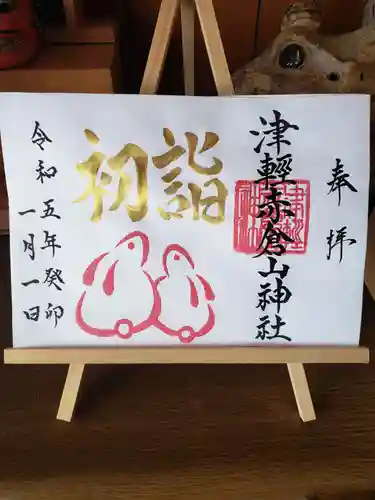 奉拝
津軽赤倉山神社
初詣
令和五年癸卯
一月一日